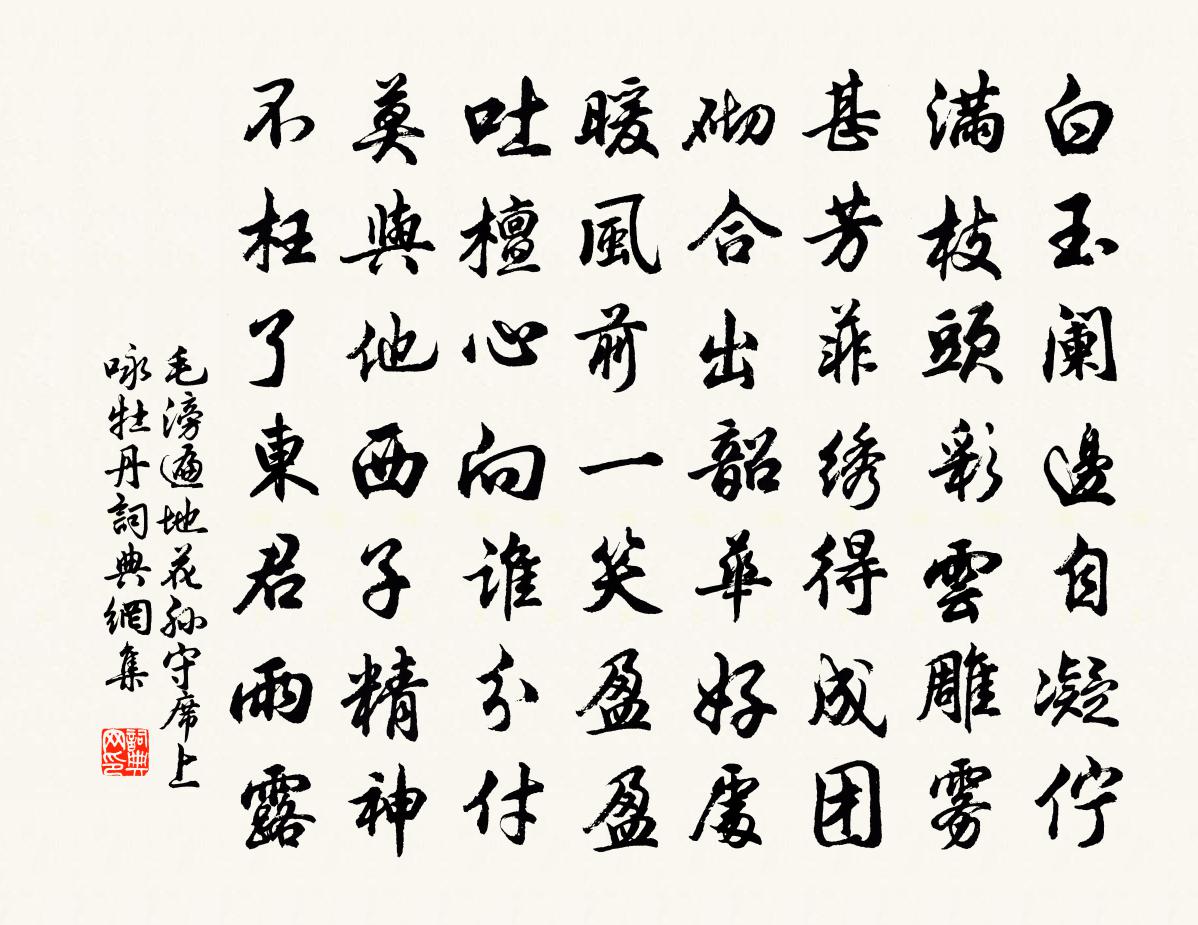 白玉阑邊自凝佇
滿枝頭彩雲雕雾
甚芳菲绣得成团
砌合出韶華好處
暖風前一笑盈盈
吐檀心向谁分付
莫與他西子精神
不枉了東君雨露
毛滂遍地花孙守席上
咏牡丹詞典網集
詞典网印